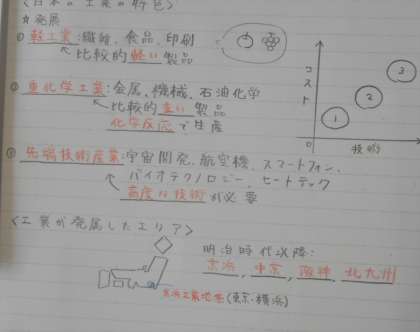 〈日本の工業の特色〉
☆発展
① 軽工業:繊維、食品、印刷
比較的軽い製品
② 重化学工業:金属、機械、石油化学
比較的重い製品
化学反応で生産
③ 先端技術産業:宇宙開発、航空機、スマートフォン、
バイオテクノロジー、ヒートテック
高度な技術が必要
コスト
技術
0
1
2
3
〈工業が発展したエリア〉
明治時代以降:
京浜、中京、阪神、北九州
京浜工業地帯(東京・横浜)